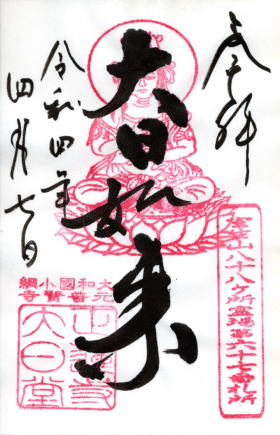 奉拝
大日如来
令和四年
四月七日
山八十八ヶ所霊場第六十七番札所
大和國小綱
元普賢寺
正蓮寺
大日堂